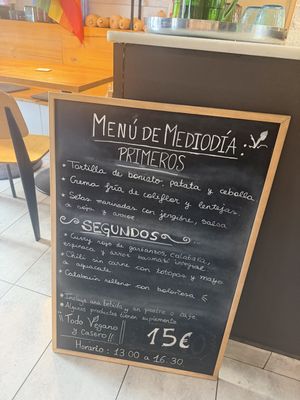 MENÚ DE MEDIODÍA:
PRIMEROS
• Tortilla de boniato, patata y cebolla
• Crema fría de coliflor y lentejas
• Setas marinadas con jengibre, salsa
de soja y arroz
SEGUNDOS
• Curry rojo de garbanzos, calabaza,
espinaca y arroz basmati integral
• Chili sin carne con totopos y mayo
de aguacate
• Calabacín relleno con boloñesa
• Incluye una bebida y un postre o café
• Algunos productos tienen suplemento
¡¡Todo Vegano
y Casero!!
15€
Horario: 13:00 a 16:30